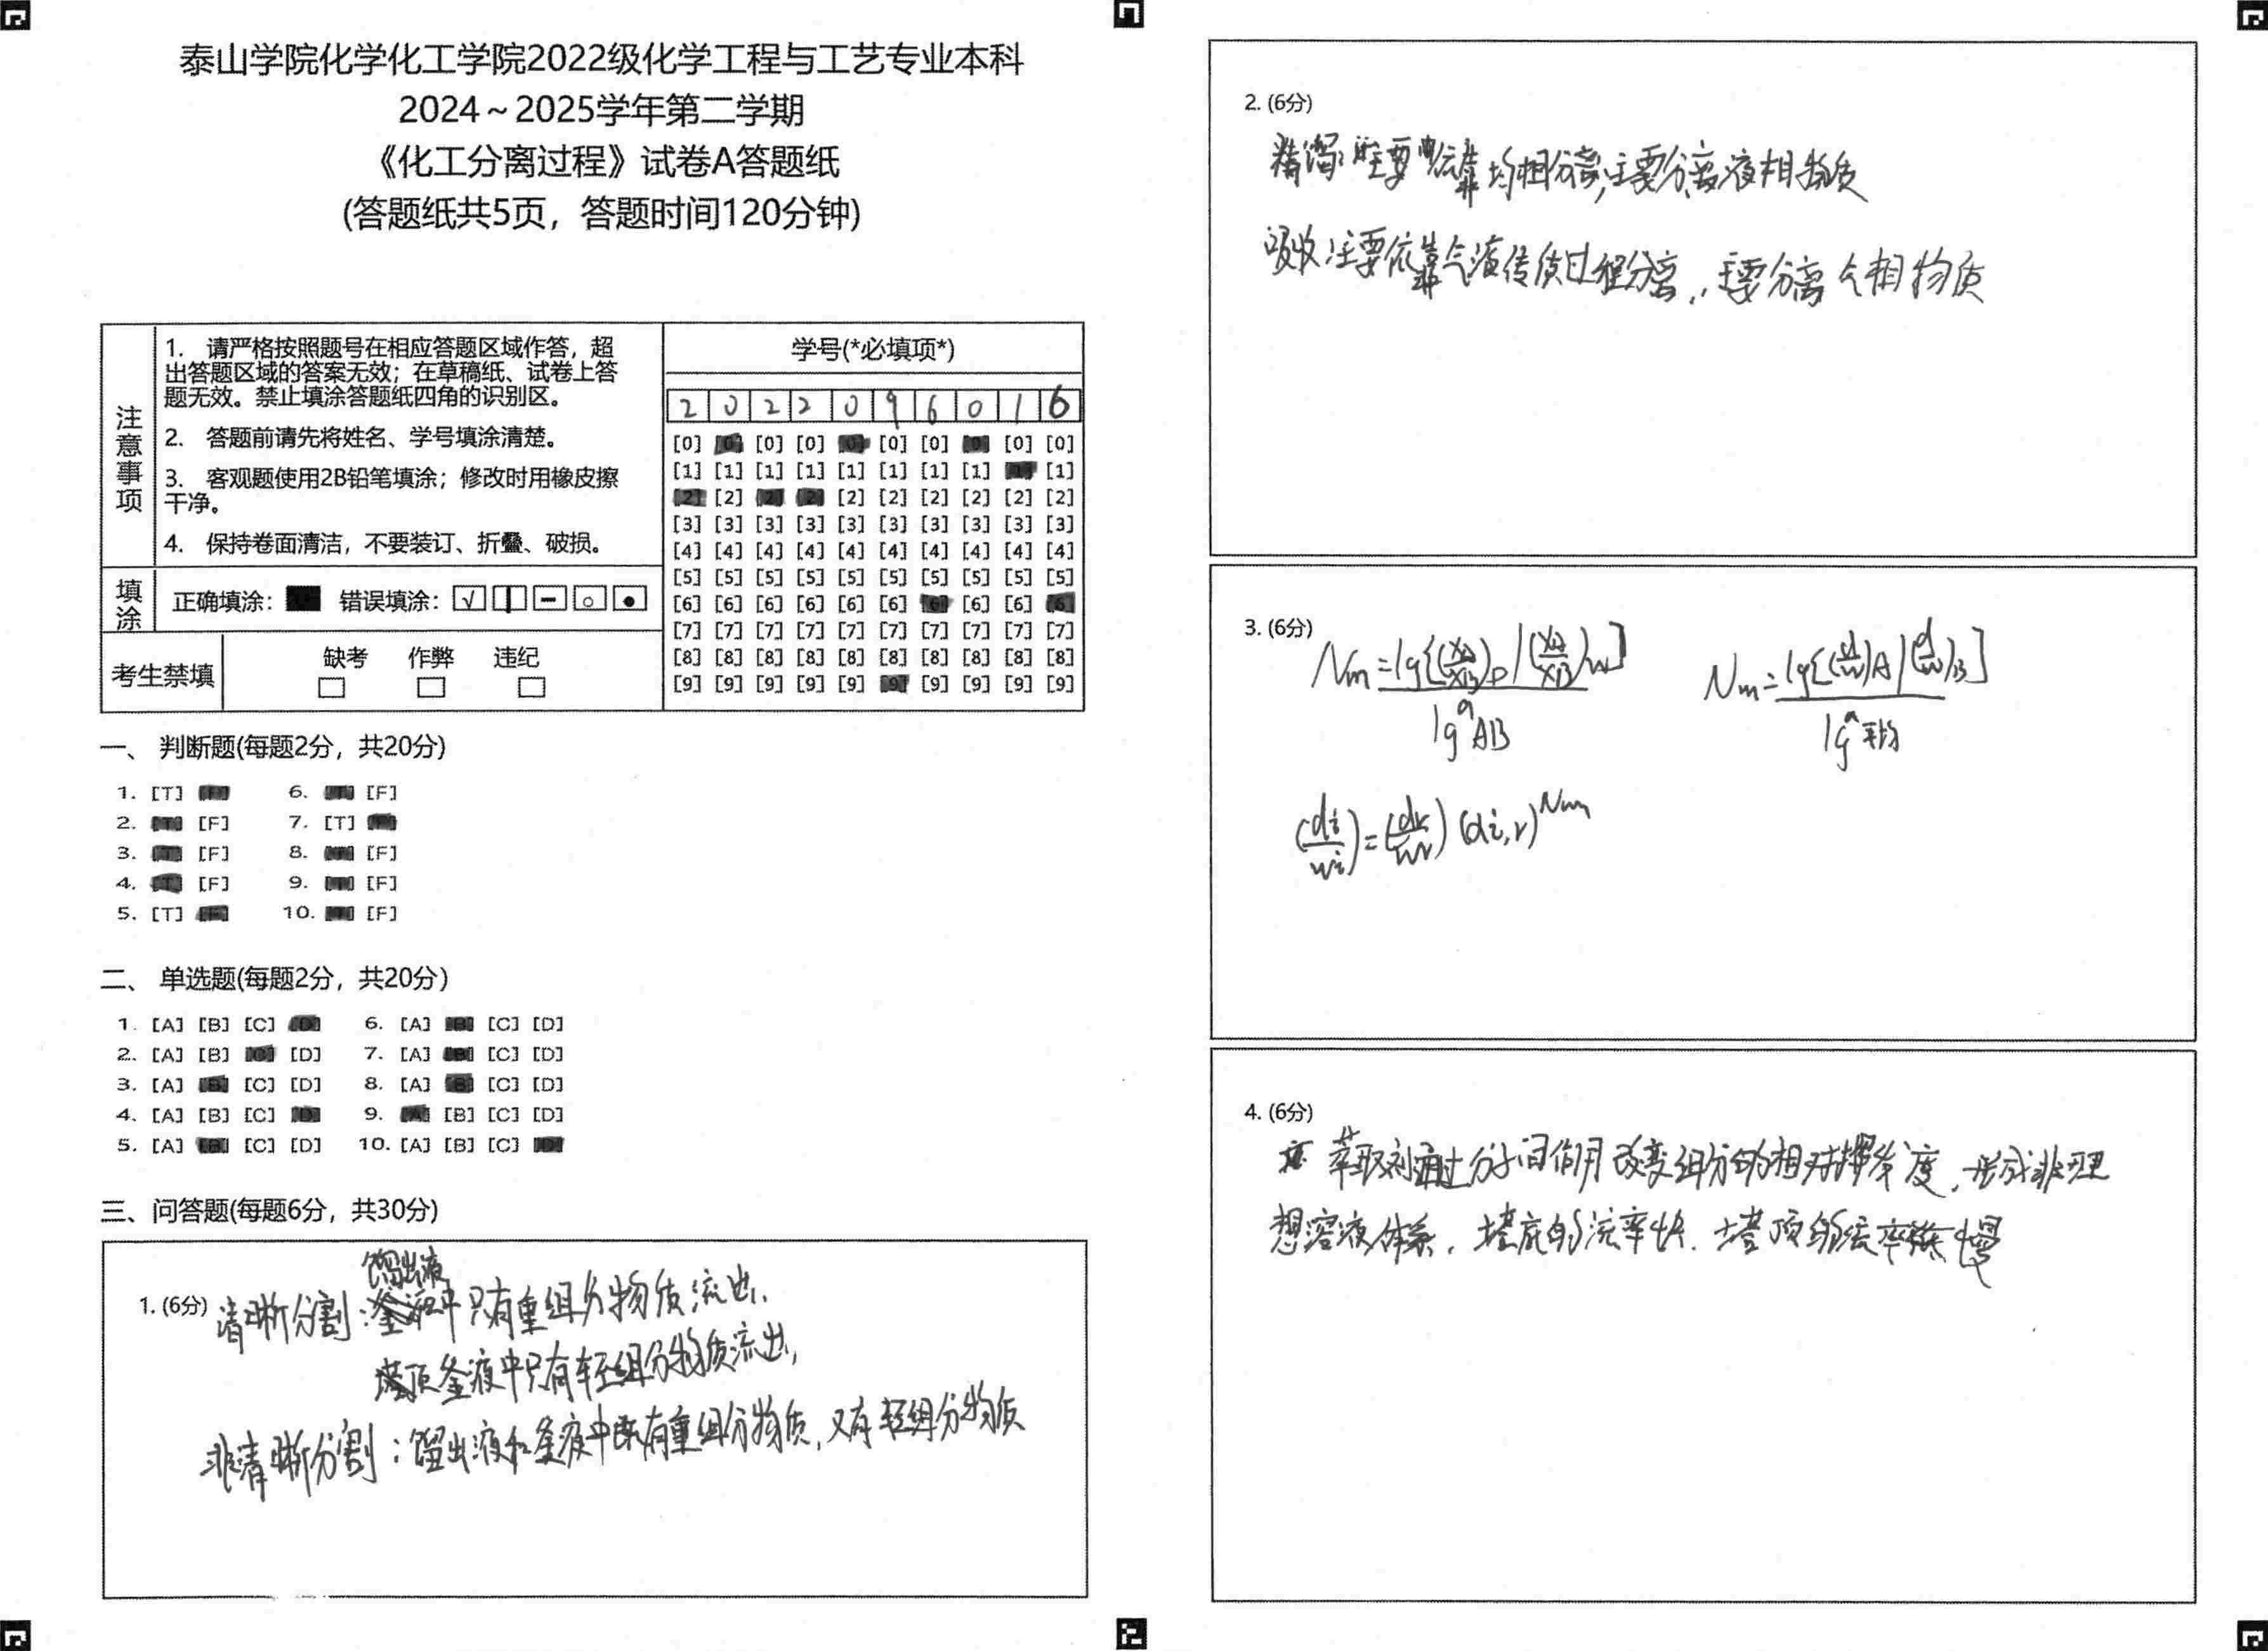 泰山学院化学化工学院2022级化学工程与工艺专业本科
2024～2025学年第二学期
《化工分离过程》试卷A答题纸
(答题纸共5页，答题时间120分钟)
注意事项
1. 请严格按照题号在相应答题区域作答，超
出答题区域的答案无效；在草稿纸、试卷上答
题无效。禁止填涂答题纸四角的识别区。
2. 答题前请先将姓名、学号填涂清楚。
3. 客观题使用2B铅笔填涂；修改时用橡皮擦
干净。
4. 保持卷面清洁，不要装订、折叠、破损。
填涂
正确填涂： 错误填涂：
考生禁填
缺考 作弊 违纪
学号(*必填项*)
2 0 2 2 0 9 6 0 1 6
[0] [0] [0] [0] [0] [0] [0] [0] [0] [0]
[1] [1] [1] [1] [1] [1] [1] [1] [1] [1]
[2] [2] [2] [2] [2] [2] [2] [2] [2] [2]
[3] [3] [3] [3] [3] [3] [3] [3] [3] [3]
[4] [4] [4] [4] [4] [4] [4] [4] [4] [4]
[5] [5] [5] [5] [5] [5] [5] [5] [5] [5]
[6] [6] [6] [6] [6] [6] [6] [6] [6] [6]
[7] [7] [7] [7] [7] [7] [7] [7] [7] [7]
[8] [8] [8] [8] [8] [8] [8] [8] [8] [8]
[9] [9] [9] [9] [9] [9] [9] [9] [9] [9]
一、 判断题(每题2分，共20分)
1. [T] [F] 6. [T] [F]
2. [T] [F] 7. [T] [F]
3. [T] [F] 8. [T] [F]
4. [T] [F] 9. [T] [F]
5. [T] [F] 10. [T] [F]
二、 单选题(每题2分，共20分)
1. [A] [B] [C] [D] 6. [A] [B] [C] [D]
2. [A] [B] [C] [D] 7. [A] [B] [C] [D]
3. [A] [B] [C] [D] 8. [A] [B] [C] [D]
4. [A] [B] [C] [D] 9. [A] [B] [C] [D]
5. [A] [B] [C] [D] 10. [A] [B] [C] [D]
三、问答题(每题6分，共30分)
1. (6分) 清晰分割：馏出液中只有重组分物质流出，
釜液中只有轻组分物质流出，
非清晰分割：馏出液和釜液中既有重组分物质，又有轻组分物质
2. (6分)
精馏：主要依靠均相分离，主要分离液相物质
吸收：主要依靠气液传质过程分离，主要分离气相物质
3. (6分)
Nm=lg[(xA/xB)D/(xA/xB)W]/lgαAB Nm=lg[(d/w)A/(d/w)B]/lgα平均
(di/wi)=(dr/wr)(αi,r)^Nm
4. (6分)
萃取剂通过分子间作用改变组分的相对挥发度，形成非理
想溶液体系，塔底的流率快，塔顶的流率慢